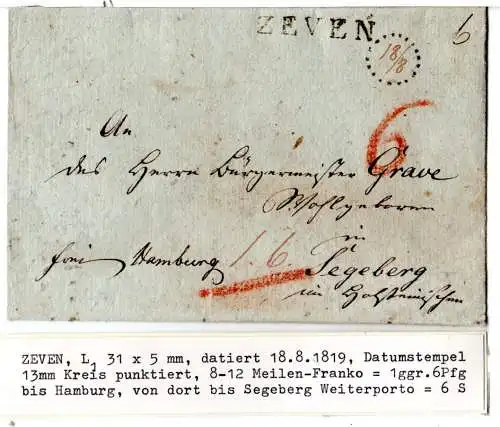 ZEVEN
6
18/8
An
des Herrn Bürgermeister Grave
6
Wohlgeboren
in
frei Hamburg 1.6. Segeberg
im Holsteinischen
ZEVEN, L1 31 x 5 mm, datiert 18.8.1819, Datumstempel
13mm Kreis punktiert, 8-12 Meilen-Franko = 1ggr.6Pfg
bis Hamburg, von dort bis Segeberg Weiterporto = 6 S